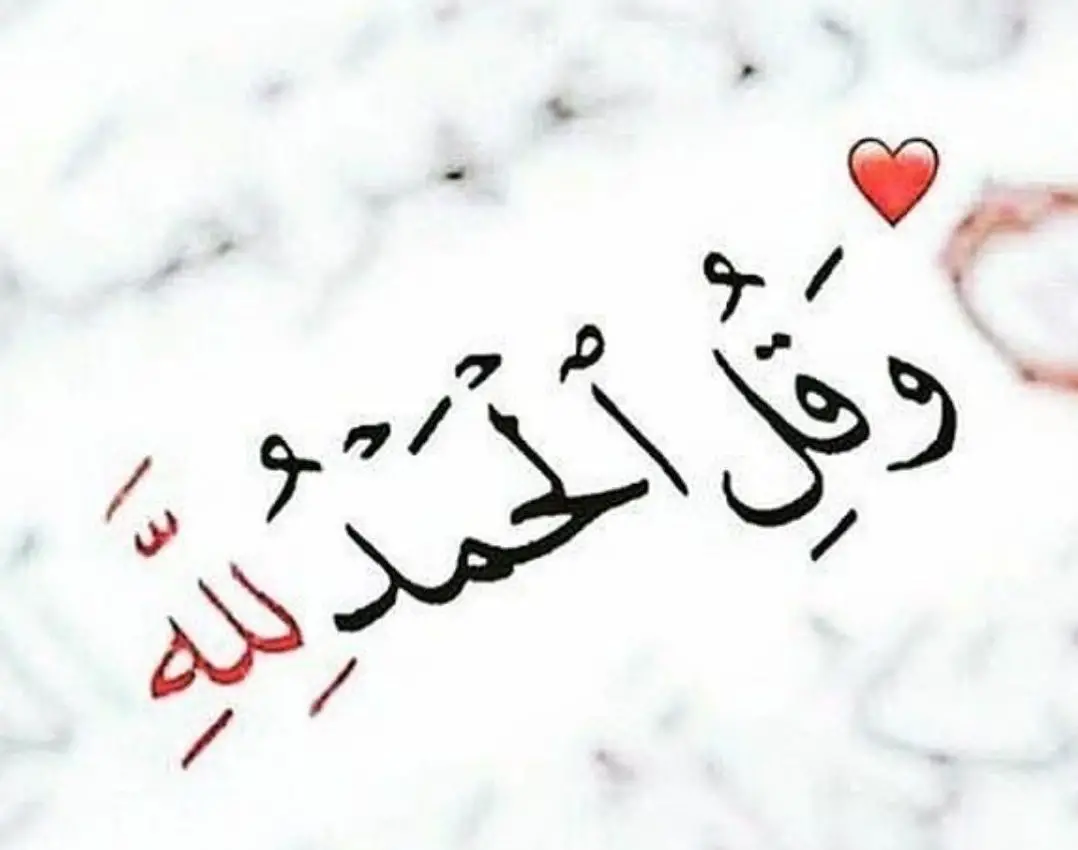 وَقُلِ ٱلْحَمْدُ لِلَّهِ ❤️